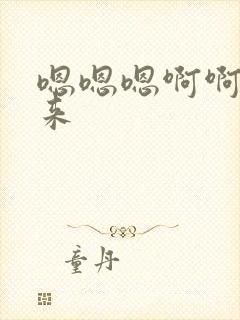 嗯嗯嗯啊啊
来
童丹